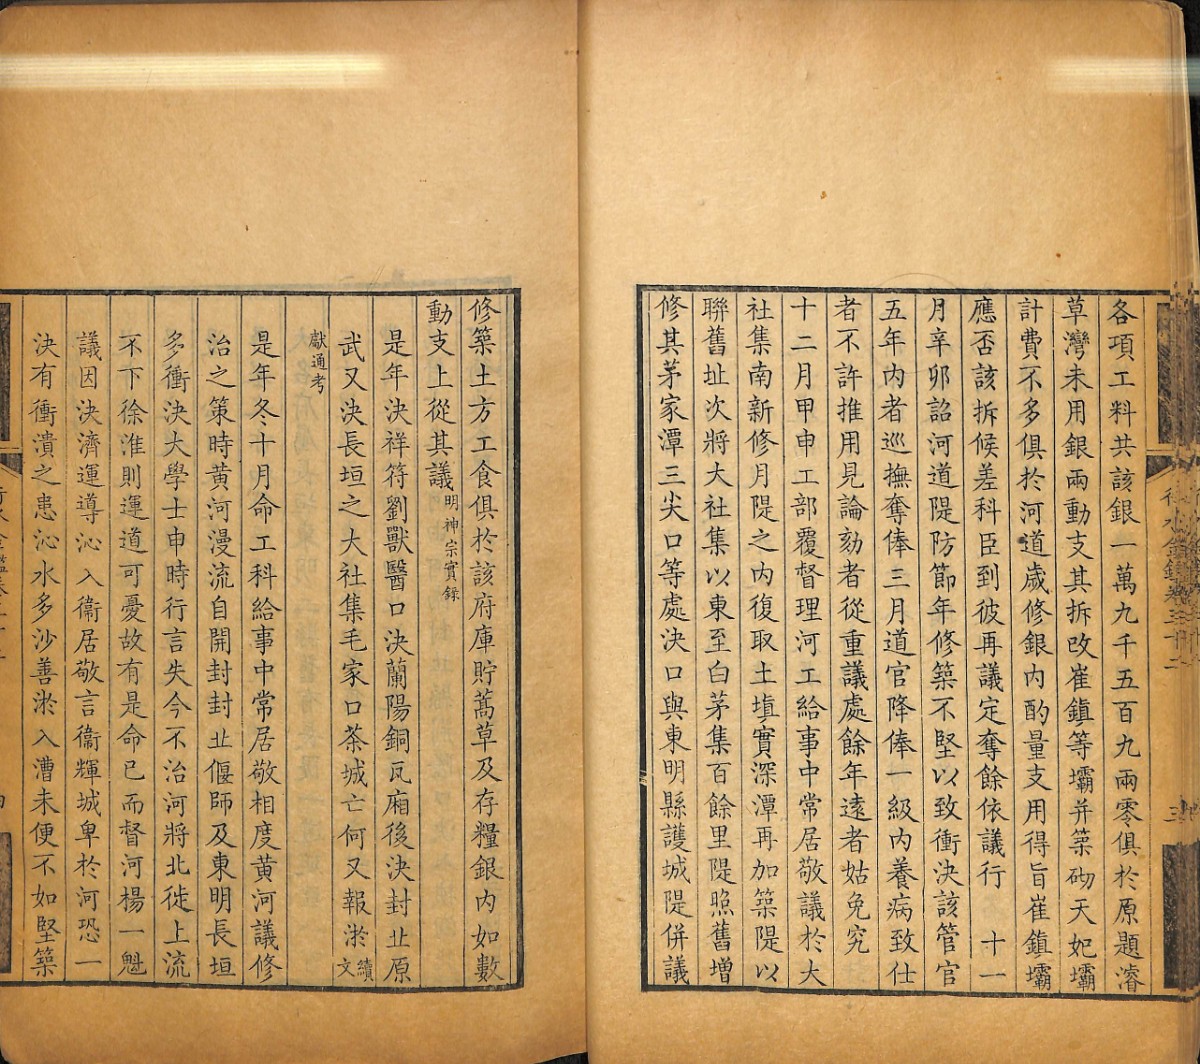 各項工料共該銀一萬九千五百九兩零俱於原題濬
草灣未用銀兩動支其拆改崔鎮等壩并築砌天妃壩
計費不多俱於河道歲修銀內酌量支用得旨崔鎮壩
應否該拆候差科臣到彼再議定奪餘依議行　十一
月辛卯詔河道隄防節年修築不堅以致衝決該管官
五年內者巡撫奪俸三月道官降俸一級內養病致仕
者不許推用見論劾者從重議處餘年遠者姑免究
十二月甲申工部覆督理河工給事中常居敬議於大
社集南新修月隄之內復取土填實深潭再加築隄以
聯舊址次將大社集以東至白茅集百餘里隄照舊增
修其茅家潭三尖口等處決口與東明縣護城隄併議
修築土方工食俱於該府庫貯蒿草及存糧銀內如數
動支上從其議明神宗實錄
是年決祥符劉獸醫口決蘭陽銅瓦廂後決封丘原
武又決長垣之大社集毛家口茶城亡何又報淤續文
獻通考
是年冬十月命工科給事中常居敬相度黃河議修
治之策時黃河漫流自開封封丘偃師及東明長垣
多衝決大學士申時行言失今不治河將北徙上流
不下徐淮則運道可憂故有是命已而督河楊一魁
議因決濟運導沁入衞居敬言衞輝城卑於河恐一
決有衝潰之患沁水多沙善淤入漕未便不如堅築